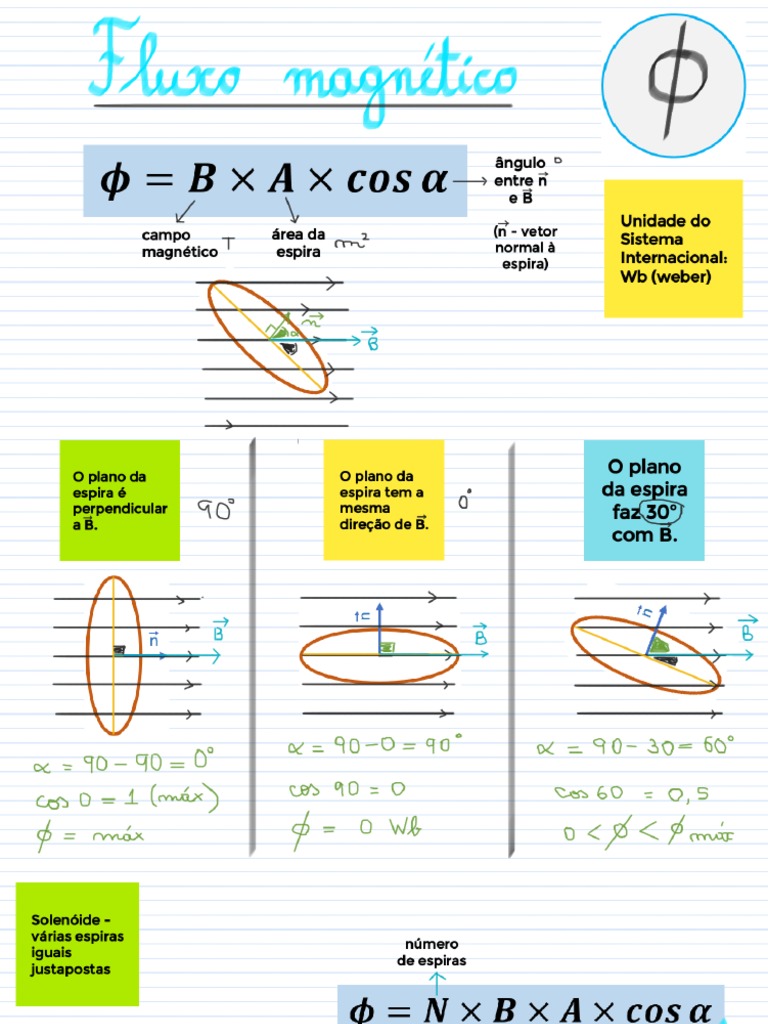 Fluxo magnético
ϕ
ϕ = B × A × cos α
ângulo °
entre n⃗
e B⃗
(n⃗ - vetor
normal à
espira)
campo
magnético T
área da
espira m²
Unidade do
Sistema
Internacional:
Wb (weber)
n⃗
α
B⃗
O plano da
espira é
perpendicular
a B⃗.
90°
O plano da
espira tem a
mesma
direção de B⃗.
0°
O plano
da espira
faz 30°
com B⃗.
n⃗
B⃗
n⃗
B⃗
n⃗
B⃗
α = 90 - 90 = 0°
cos 0 = 1 (máx)
ϕ = máx
α = 90 - 0 = 90°
cos 90 = 0
ϕ = 0 Wb
α = 90 - 30 = 60°
cos 60 = 0,5
0 < ϕ < ϕ máx
Solenóide -
várias espiras
iguais
justapostas
número
de espiras
ϕ = N × B × A × cos α